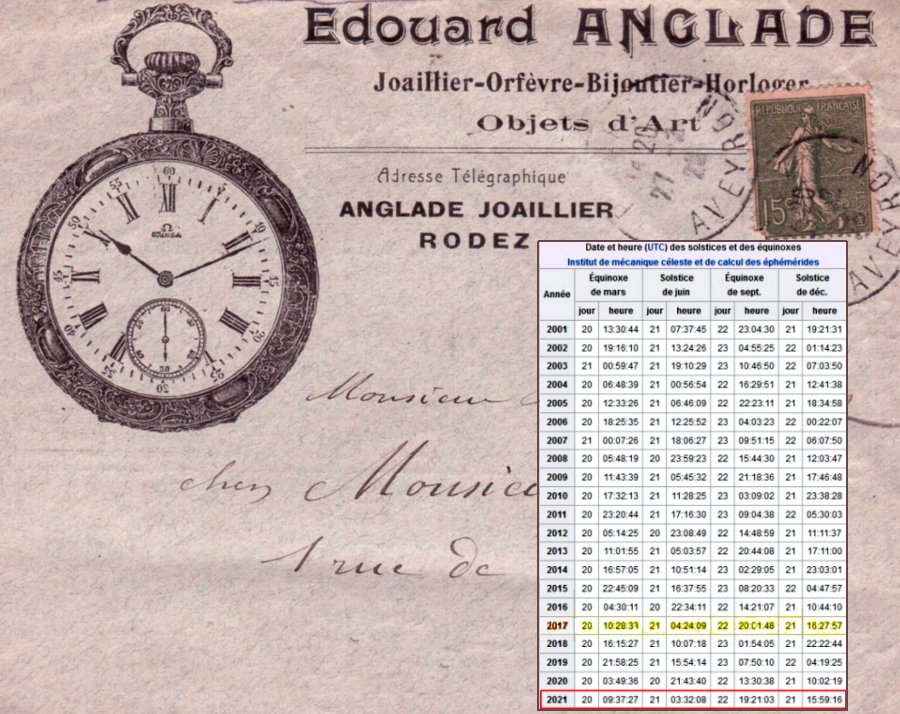 Edouard ANGLADE
Joaillier-Orfèvre-Bijoutier-Horloger
Objets d'Art
Adresse Télégraphique
ANGLADE JOAILLIER
RODEZ
REPUBLIQUE FRANÇAISE
15
AVEYRON
AVEYRON
60
55
5
50
10
45
40
20
XII
I
XI
X
II
III
IX
IIII
VIII
OMEGA
60
Monsieur
chez Monsieu
1 rue de
Date et heure (UTC) des solstices et des équinoxes
Institut de mécanique céleste et de calcul des éphémérides
Année Équinoxe de mars Solstice de juin Équinoxe de sept. Solstice de déc.
jour heure jour heure jour heure jour heure
2001 20 13:30:44 21 07:37:45 22 23:04:30 21 19:21:31
2002 20 19:16:10 21 13:24:26 23 04:55:25 22 01:14:23
2003 21 00:59:47 21 19:10:29 23 10:46:50 22 07:03:50
2004 20 06:48:39 21 00:56:54 22 16:29:51 21 12:41:38
2005 20 12:33:26 21 06:46:09 22 22:23:11 21 18:34:58
2006 20 18:25:35 21 12:25:52 23 04:03:23 22 00:22:07
2007 21 00:07:26 21 18:06:27 23 09:51:15 22 06:07:50
2008 20 05:48:19 20 23:59:23 22 15:44:30 21 12:03:47
2009 20 11:43:39 21 05:45:32 22 21:18:36 21 17:46:48
2010 20 17:32:13 21 11:28:25 23 03:09:02 21 23:38:28
2011 20 23:20:44 21 17:16:30 23 09:04:38 22 05:30:03
2012 20 05:14:25 20 23:08:49 22 14:48:59 21 11:11:37
2013 20 11:01:55 21 05:03:57 22 20:44:08 21 17:11:00
2014 20 16:57:05 21 10:51:14 23 02:29:05 21 23:03:01
2015 20 22:45:09 21 16:37:55 23 08:20:33 22 04:47:57
2016 20 04:30:11 20 22:34:11 22 14:21:07 21 10:44:10
2017 20 10:28:33 21 04:24:09 22 20:01:48 21 16:27:57
2018 20 16:15:27 21 10:07:18 23 01:54:05 21 22:22:44
2019 20 21:58:25 21 15:54:14 23 07:50:10 22 04:19:25
2020 20 03:49:36 20 21:43:40 22 13:30:38 21 10:02:19
2021 20 09:37:27 21 03:32:08 22 19:21:03 21 15:59:16